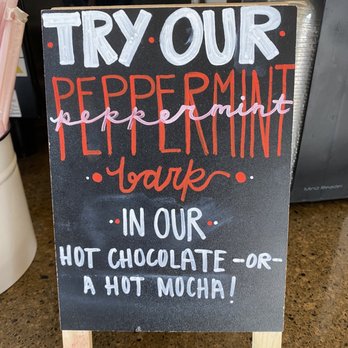 TRY OUR
PEPPERMINT
peppermint
bark
IN OUR
HOT CHOCOLATE -OR-
A HOT MOCHA!